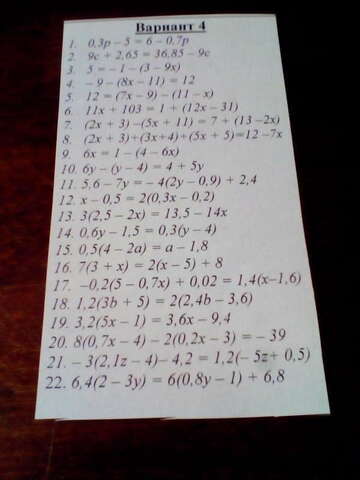 Вариант 4
1. 0,3p – 5 = 6 – 0,7p
2. 9c + 2,65 = 36,85 – 9c
3. 5 = – 1 – (3 – 9x)
4. – 9 – (8x – 11) = 12
5. 12 = (7x – 9) – (11 – x)
6. 11x + 103 = 1 + (12x – 31)
7. (2x + 3) –(5x + 11) = 7 + (13 –2x)
8. (2x + 3)+(3x+4)+(5x + 5)=12 –7x
9. 6x = 1 – (4 – 6x)
10. 6y – (y – 4) = 4 + 5y
11. 5,6 – 7y = – 4(2y – 0,9) + 2,4
12. x – 0,5 = 2(0,3x – 0,2)
13. 3(2,5 – 2x) = 13,5 – 14x
14. 0,6y – 1,5 = 0,3(y – 4)
15. 0,5(4 – 2a) = a – 1,8
16. 7(3 + x) = 2(x – 5) + 8
17. –0,2(5 – 0,7x) + 0,02 = 1,4(x–1,6)
18. 1,2(3b + 5) = 2(2,4b – 3,6)
19. 3,2(5x – 1) = 3,6x – 9,4
20. 8(0,7x – 4) – 2(0,2x – 3) = – 39
21. – 3(2,1z – 4)– 4,2 = 1,2(– 5z+ 0,5)
22. 6,4(2 – 3y) = 6(0,8y – 1) + 6,8